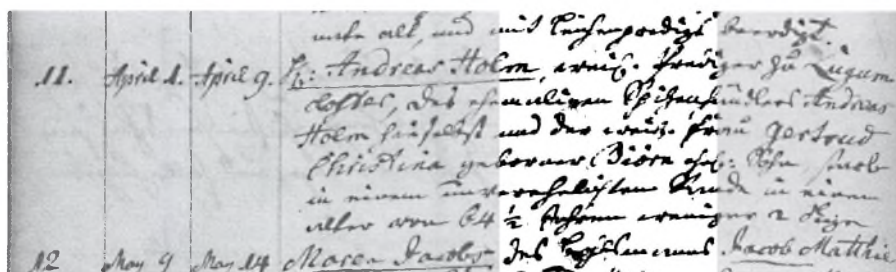 nate alt, und mit Leichenpredigt beerdigt.
11. April 4. April 9. H: Andreas Holm, Prediger zu Lügum
closter, des ehemaligen Spitzenhändlers Andreas
Holm hieselbst und der Frau Gertrud
Christina geborner Biörn ehel. Sohn, starb
in einem unverehelichten Stande in einem
alter von 64 1/2 Jahren weniger 2 Tage
12 May 9 May 14 Maren Jacobs des Jacob Matthi